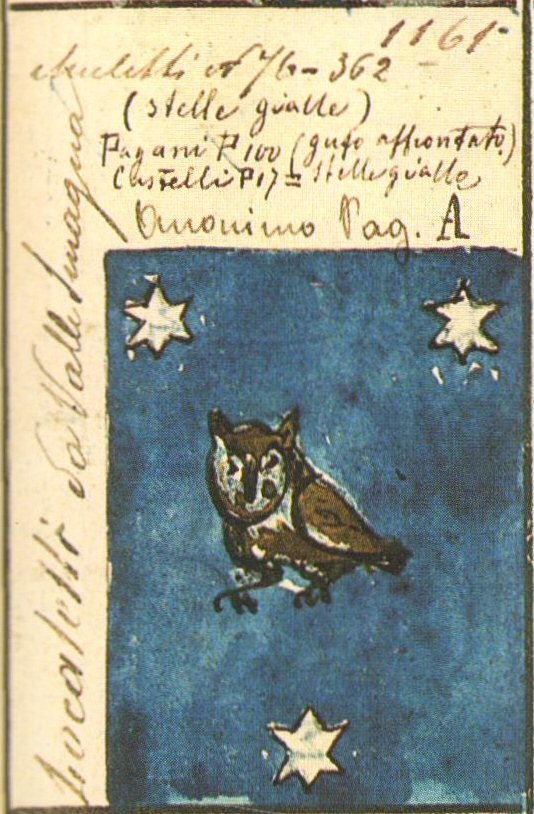 1161
76 - 362
(stelle gialle)
Pagani P 100 (gufo affrontato)
Castelli P 17 = stelle gialle
Anonimo Pag. A
Locatelli da Valle Imagna